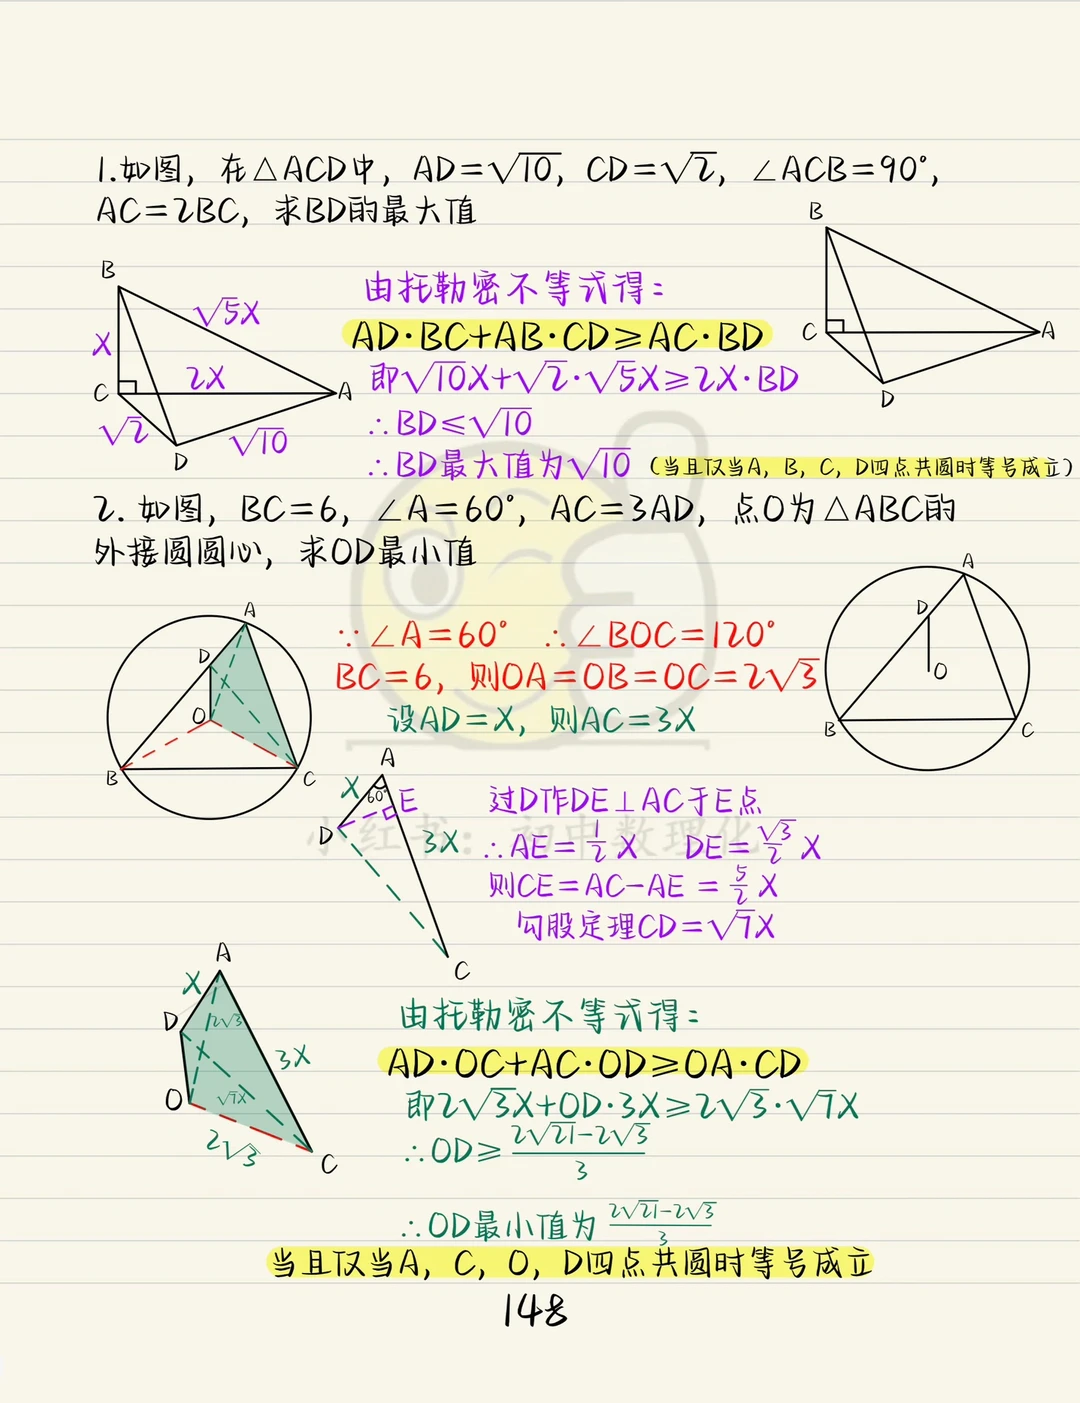 1.如图，在△ACD中，AD=√10，CD=√2，∠ACB=90°，
AC=2BC，求BD的最大值
B
C
A
D
B
X
√5X
2X
C
A
√2
√10
D
由托勒密不等式得：
AD·BC+AB·CD≥AC·BD
即√10X+√2·√5X≥2X·BD
∴BD≤√10
∴BD最大值为√10（当且仅当A，B，C，D四点共圆时等号成立）
2. 如图，BC=6，∠A=60°，AC=3AD，点O为△ABC的
外接圆圆心，求OD最小值
A
D
O
B
C
A
D
O
B
C
∵∠A=60° ∴∠BOC=120°
BC=6，则OA=OB=OC=2√3
设AD=X，则AC=3X
A
X
60°
E
D
3X
C
过D作DE⊥AC于E点
∴AE=1/2 X DE=√3/2 X
则CE=AC-AE=5/2 X
勾股定理CD=√7X
小红书：初中数理化
A
X
D
2√3
3X
O
√7X
2√3
C
由托勒密不等式得：
AD·OC+AC·OD≥OA·CD
即2√3X+OD·3X≥2√3·√7X
∴OD≥(2√21-2√3)/3
∴OD最小值为(2√21-2√3)/3
当且仅当A，C，O，D四点共圆时等号成立
148